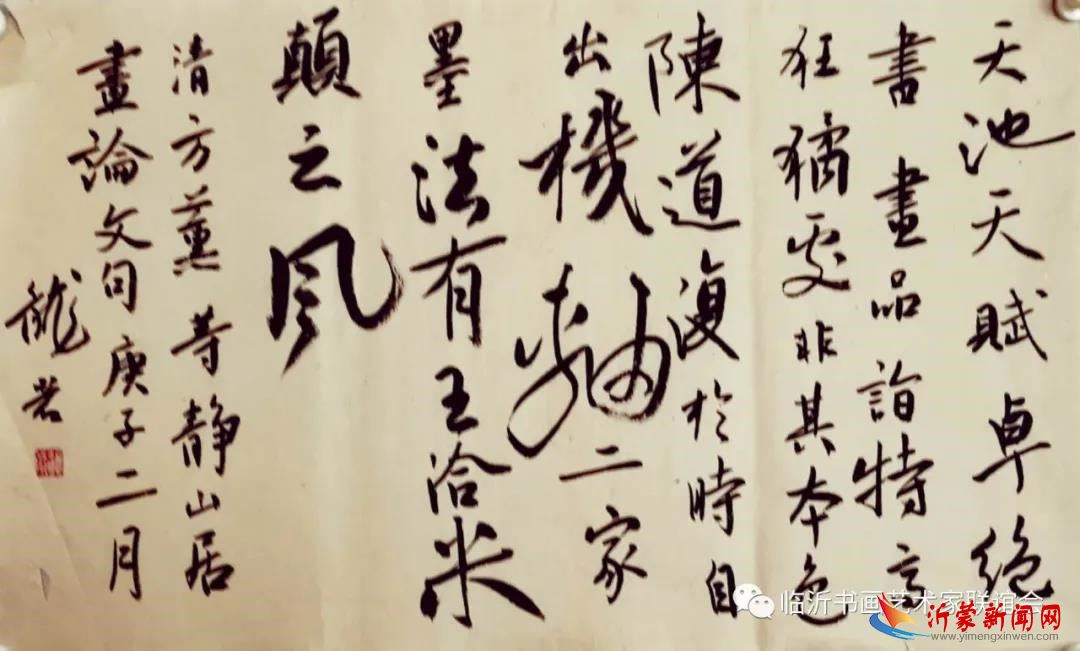 天池天賦卓絶
書畫品詣特高
狂獝處非其本色
陳道復於時自
出機軸二家
墨法有王洽米
顛之风
清方薰等静山居
畫論文句庚子二月
龍若
临沂书画艺术家联谊会
沂蒙新闻网
www.yimengxinwen.com